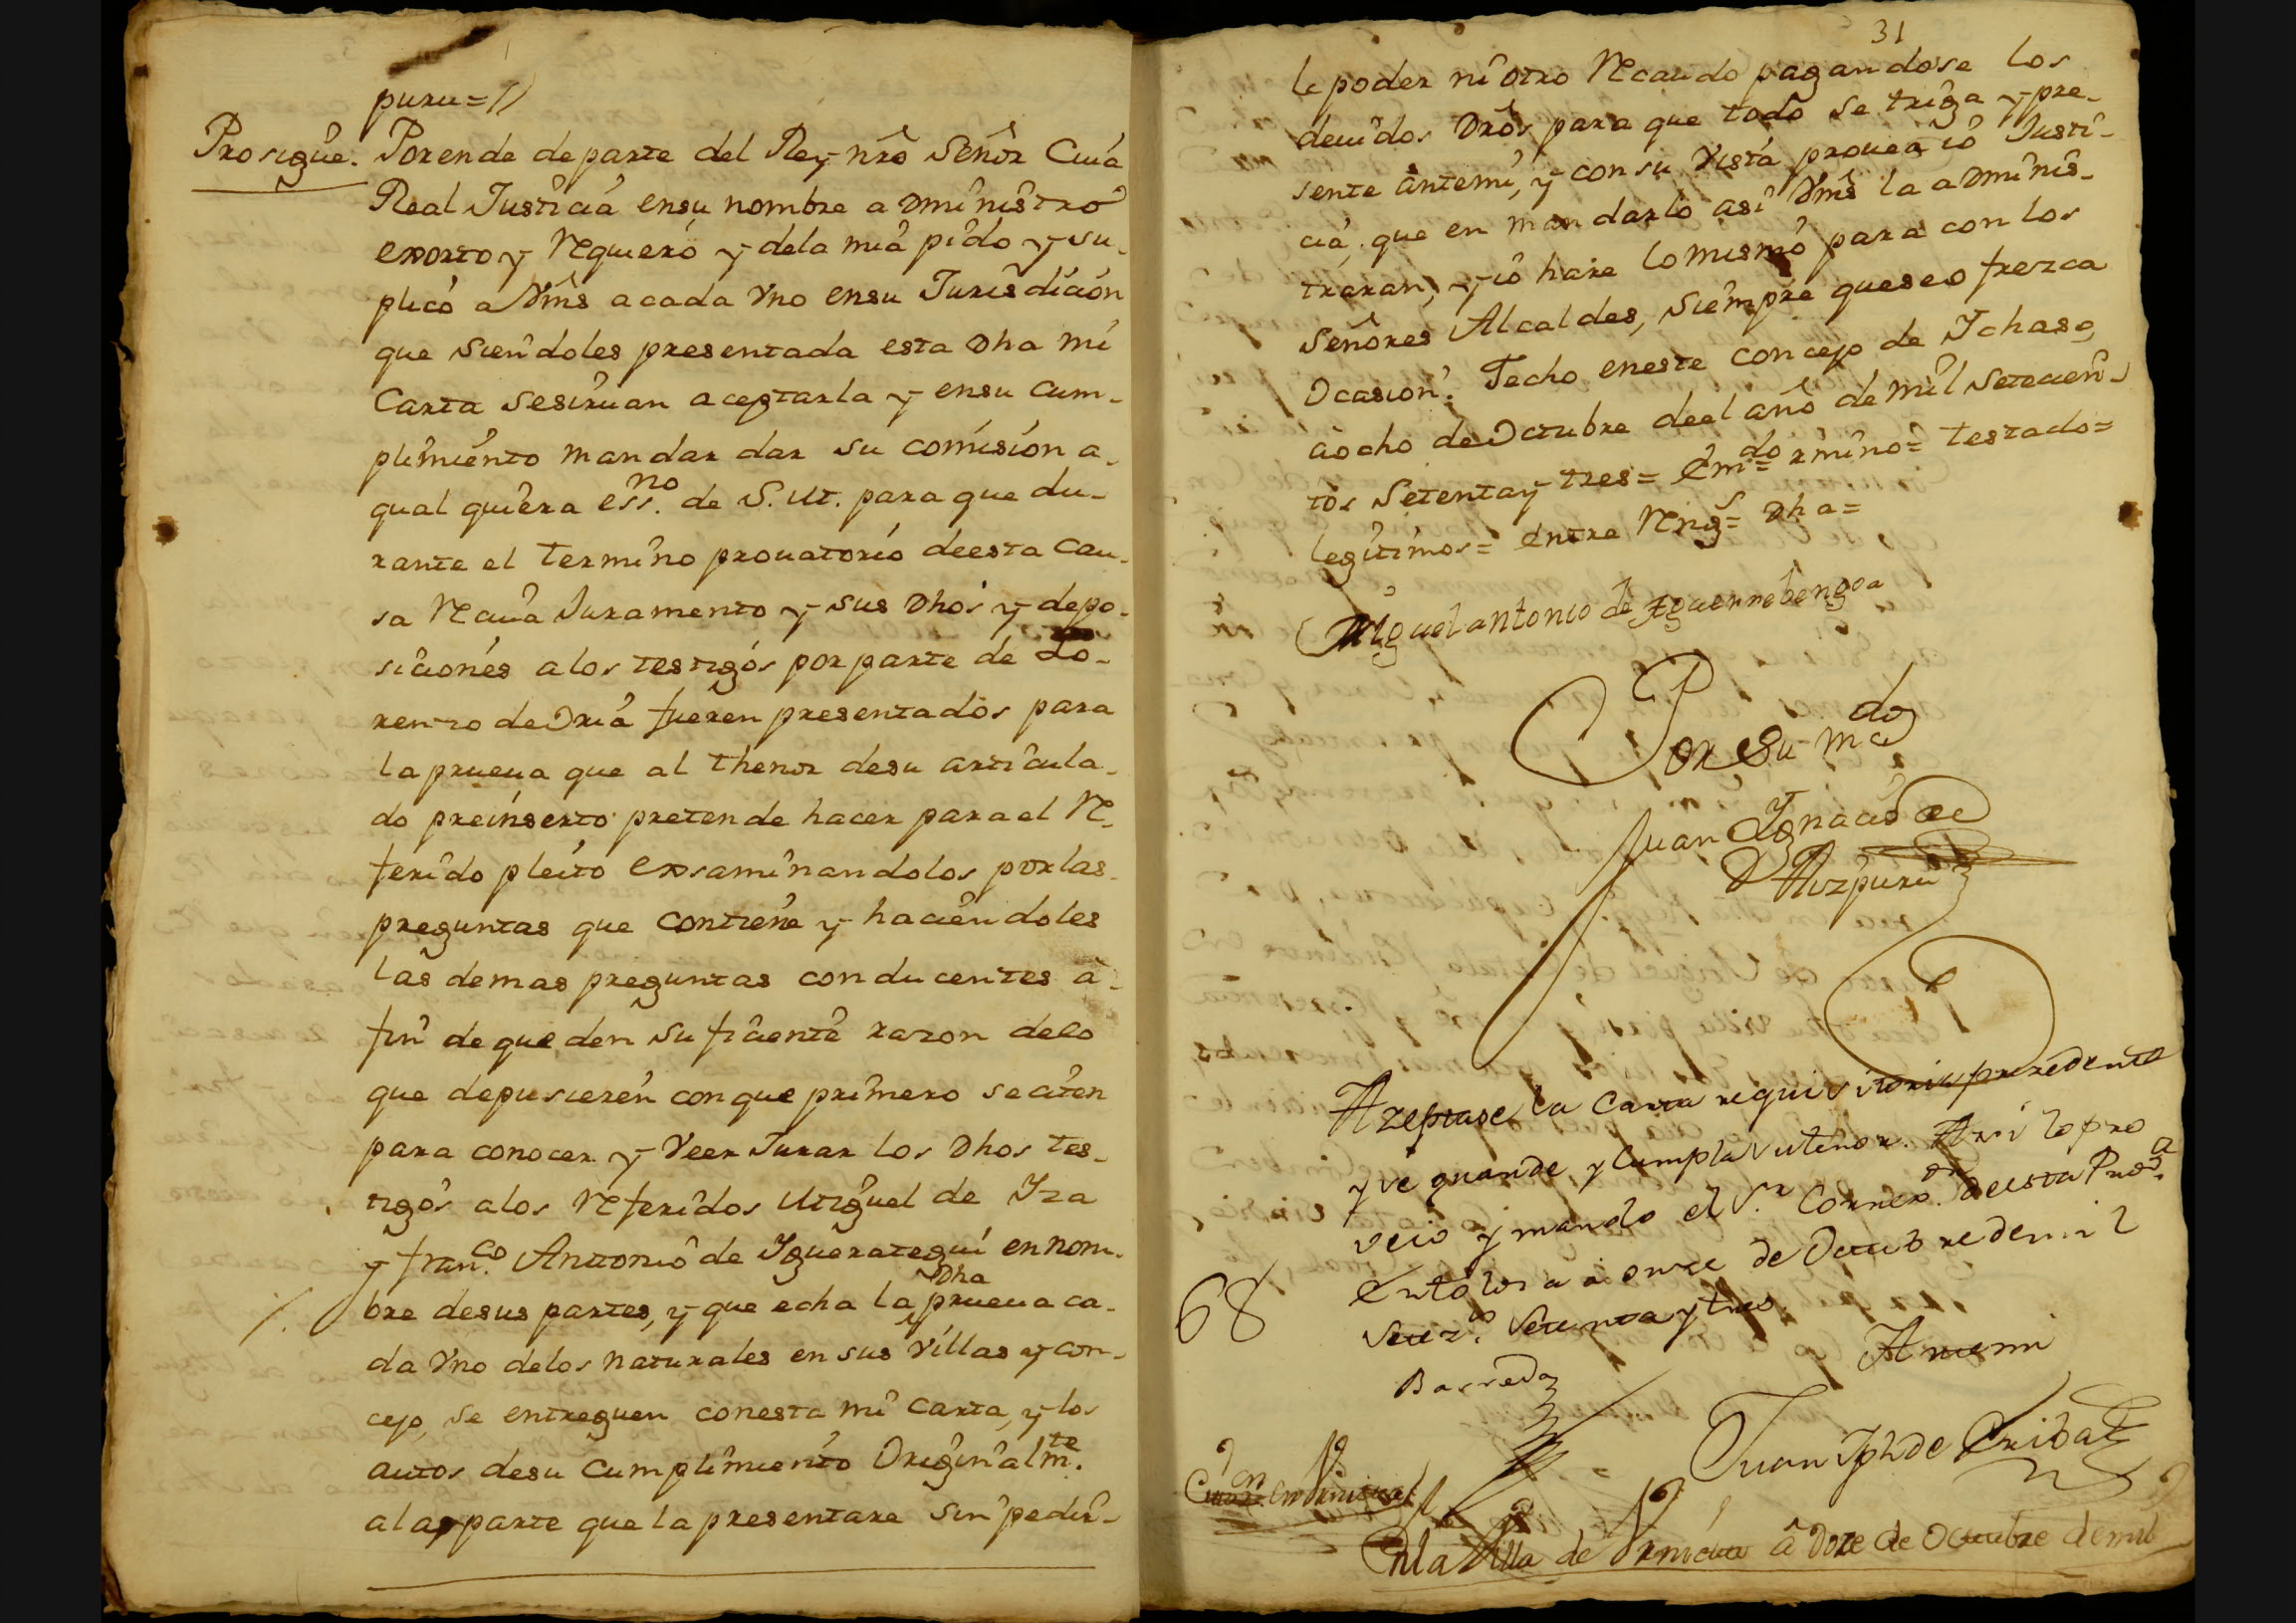 puru=//
Prosigue. Porende departe del Rey nrô Señor Cuia
Real Justicia ensu nombre administro
exorto y Requiero y dela mia pido y su-
plico a Vmš acada Vno ensu Jurisdicion
que siendoles presentada esta Dha mi
Carta sesiruan aceptarla y ensu cum-
plimiento mandar dar su comision a-
qual quiera essno. de S. M. para que du-
rante el termino prouatorio deesta Cau-
sa Reciua Juramento y sus Dhos y depo-
siciones alos testigos por parte de Lo-
renzo deOria fueren presentados para
la prueua que al thenor desu articula-
do preinserto pretende hacer para el Re-
ferido pleito exsaminandolos porlas
preguntas que contiene y haciendoles
las demas preguntas conducentes a-
fin de que den suficiente razon delo
que depusieren conque primero seciten
para conocer y Veer Jurar los Dhos tes-
tigos alos Referidos Miguel de Yza
y franco. Antonio de Yguerategui en nom-
bre desus partes, y que echa la Dha prueua ca-
da Vno delos naturales en sus Villas y con-
cejo, se entreguen conesta mi carta, y los
autos desu cumplimiento Originalmte.
ala parte que la presentare sin pedir-
31
le poder ni otro Recaudo pagandose los
deuidos Drôs para que todo se triga y pre-
sente antemi, y con su Vista prouea io Justi-
cia, que en mandarlo asi Vmš la adminis-
traran, y io hare lo mismo para con los
Señores Alcaldes, siempre queseo frezca
Ocasion. Fecho eneste concejo de Ichaso,
aocho deOctubre deel año de mil setecien-
tos setentay tres= emdo= rmino= testado=
legitimos= entre Reng s= Dha=
Miguel antonio de Eguerrebengoa
Por Su mdo
Juan Ygnacio de
Aizpuru
Azeptase la Carta requisitoria prezedente
y se guarde, y cumpla su tenor. Assi lo pro
veio y mando el Sr. Correxor. deesta Proa.
Entolosa a once de Octubre demil
Setezs. Setenta y tres.
68
Barreda
Antemi
Juan Jph de Eribat
Enla Villa de Vrnieta â Doze de Octubre demil